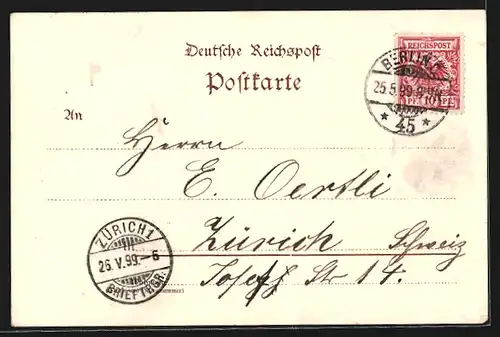 Deutsche Reichspost
Postkarte
REICHSPOST
10 PF
BERLIN
25.5.99
* 45 *
An
Herrn
E. Oertli
Zürich Schweiz
Josef Str 14.
ZÜRICH 1
III.
26. V. 99. - 6
BRIEFTRGR.